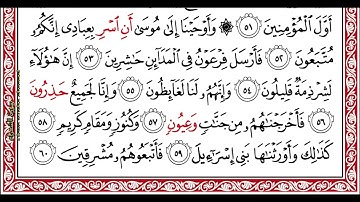 أَوَّلَ ٱلْمُؤْمِنِينَ ٥١ ۞ وَأَوْحَيْنَآ إِلَىٰ مُوسَىٰٓ أَنِ ٱسْرِ بِعِبَادِىٓ إِنَّكُمُ
مُتَّبَعُونَ ٥٢ فَأَرْسَلَ فِرْعَوْنُ فِى ٱلْمَدَآئِنِ حَٰشِرِينَ ٥٣ إِنَّ هَٰٓؤُلَآءِ
لَشِرْذِمَةٌ قَلِيلُونَ ٥٤ وَإِنَّهُمُۥ لَنَا لَغَآئِظُونَ ٥٥ وَإِنَّا لَجَمِيعٌ حَذِرُونَ
٥٦ فَأَخْرَجْنَٰهُمُۥ مِن جَنَّٰتٍ وَعِيُونٍ ٥٧ وَكُنُوزٍ وَمَقَامٍ كَرِيمٍ ٥٨
كَذَٰلِكَ وَأَوْرَثْنَٰهَا بَنِىٓ إِسْرَٰٓءِيلَ ٥٩ فَأَتْبَعُوهُمُۥ مُشْرِقِينَ ٦٠